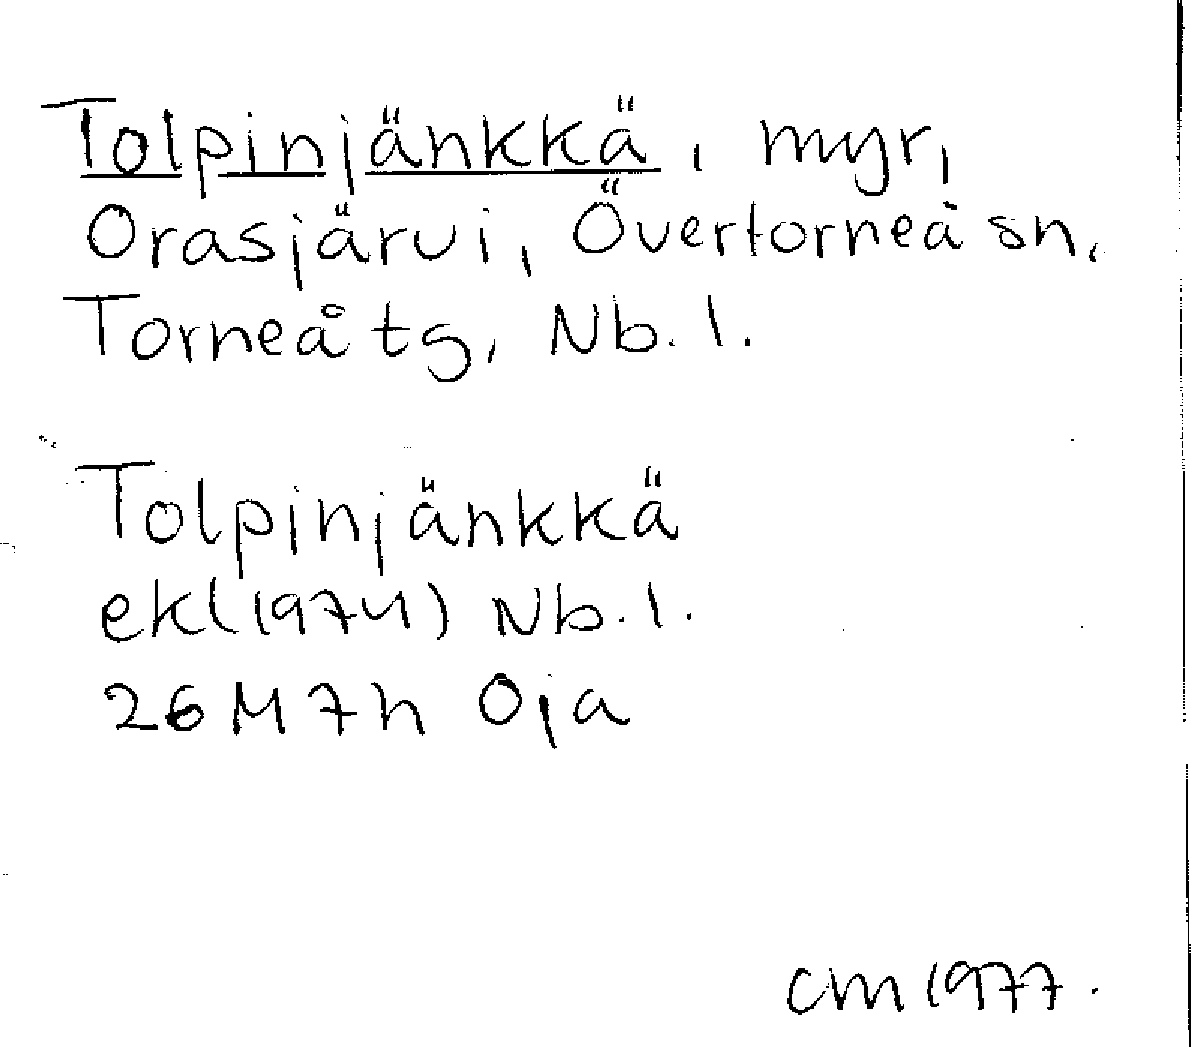 Tolpinjänkkä, myr,
Orasjärvi, Övertorneå sn,
Torneå tg, Nb. l.
Tolpinjänkkä
ekl(1974) Nb. l.
26 M 7h Oja
CM 1977.